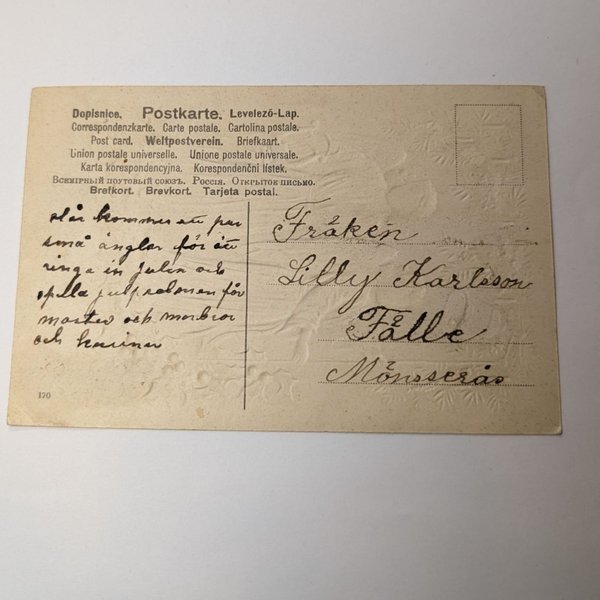 Dopisnice. Postkarte. Levelező-Lap.
Correspondenzkarte. Carte postale. Cartolina postale.
Post card. Weltpostverein. Briefkaart.
Union postale universelle. Unione postale universale.
Karta korespondencyjna. Korespondenční lístek.
Всемірный поутовый союзъ. Россія. Открытое письмо.
Brefkort. Brevkort. Tarjeta postal.
här kommer ett par
små änglar för att
ringa in julen och
spella julpsalmen för
moster och morbror
och
170
Fröken
Lilly Karlsson
Fålle
Mönsserås